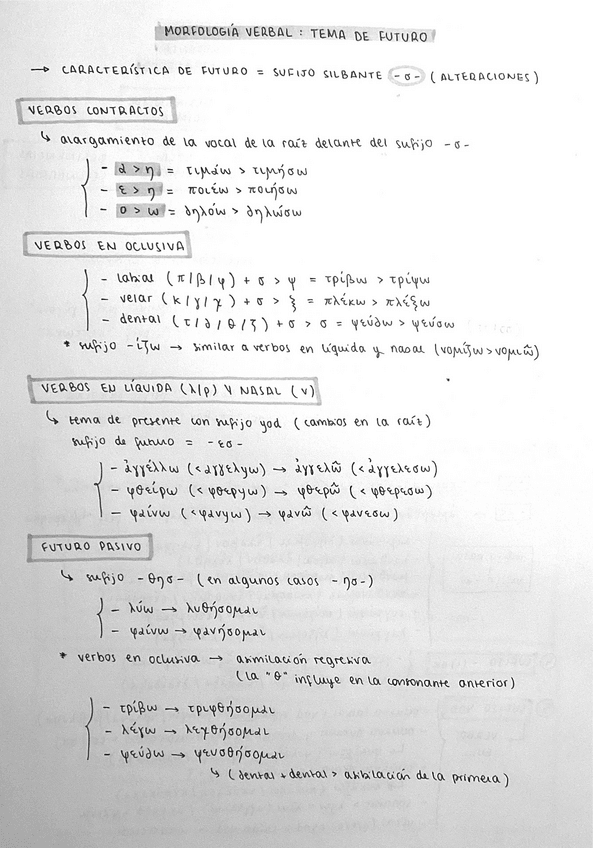 MORFOLOGÍA VERBAL : TEMA DE FUTURO
→ CARACTERÍSTICA DE FUTURO = SUFIJO SILBANTE -σ- (ALTERACIONES)
VERBOS CONTRACTOS
↳ alargamiento de la vocal de la raíz delante del sufijo -σ-
- α > η = τιμάω > τιμήσω
- ε > η = ποιέω > ποιήσω
- ο > ω = δηλόω > δηλώσω
VERBOS EN OCLUSIVA
- labial (π/β/φ) + σ > ψ = τρίβω > τρίψω
- velar (κ/γ/χ) + σ > ξ = πλέκω > πλέξω
- dental (τ/δ/θ/ζ) + σ > σ = ψεύδω > ψεύσω
* sufijo -ίζω → similar a verbos en líquida y nasal (νομίζω > νομιῶ)
VERBOS EN LÍQUIDA (λ/ρ) Y NASAL (ν)
↳ tema de presente con sufijo yod (cambios en la raíz)
sufijo de futuro = -εσ-
- ἀγγέλλω (< αγγελyω) → ἀγγελῶ (< ἀγγελεσω)
- φθείρω (< φθερyω) → φθερῶ (< φθερεσω)
- φαίνω (< φανyω) → φανῶ (< φανεσω)
FUTURO PASIVO
↳ sufijo -θησ- (en algunos casos -ησ-)
- λύω → λυθήσομαι
- φαίνω → φανήσομαι
* verbos en oclusiva → asimilación regresiva
(la "θ" influye en la consonante anterior)
- τρίβω → τριφθήσομαι
- λέγω → λεχθήσομαι
- ψεύδω → ψευσθήσομαι
↳ (dental + dental > asibilación de la primera)